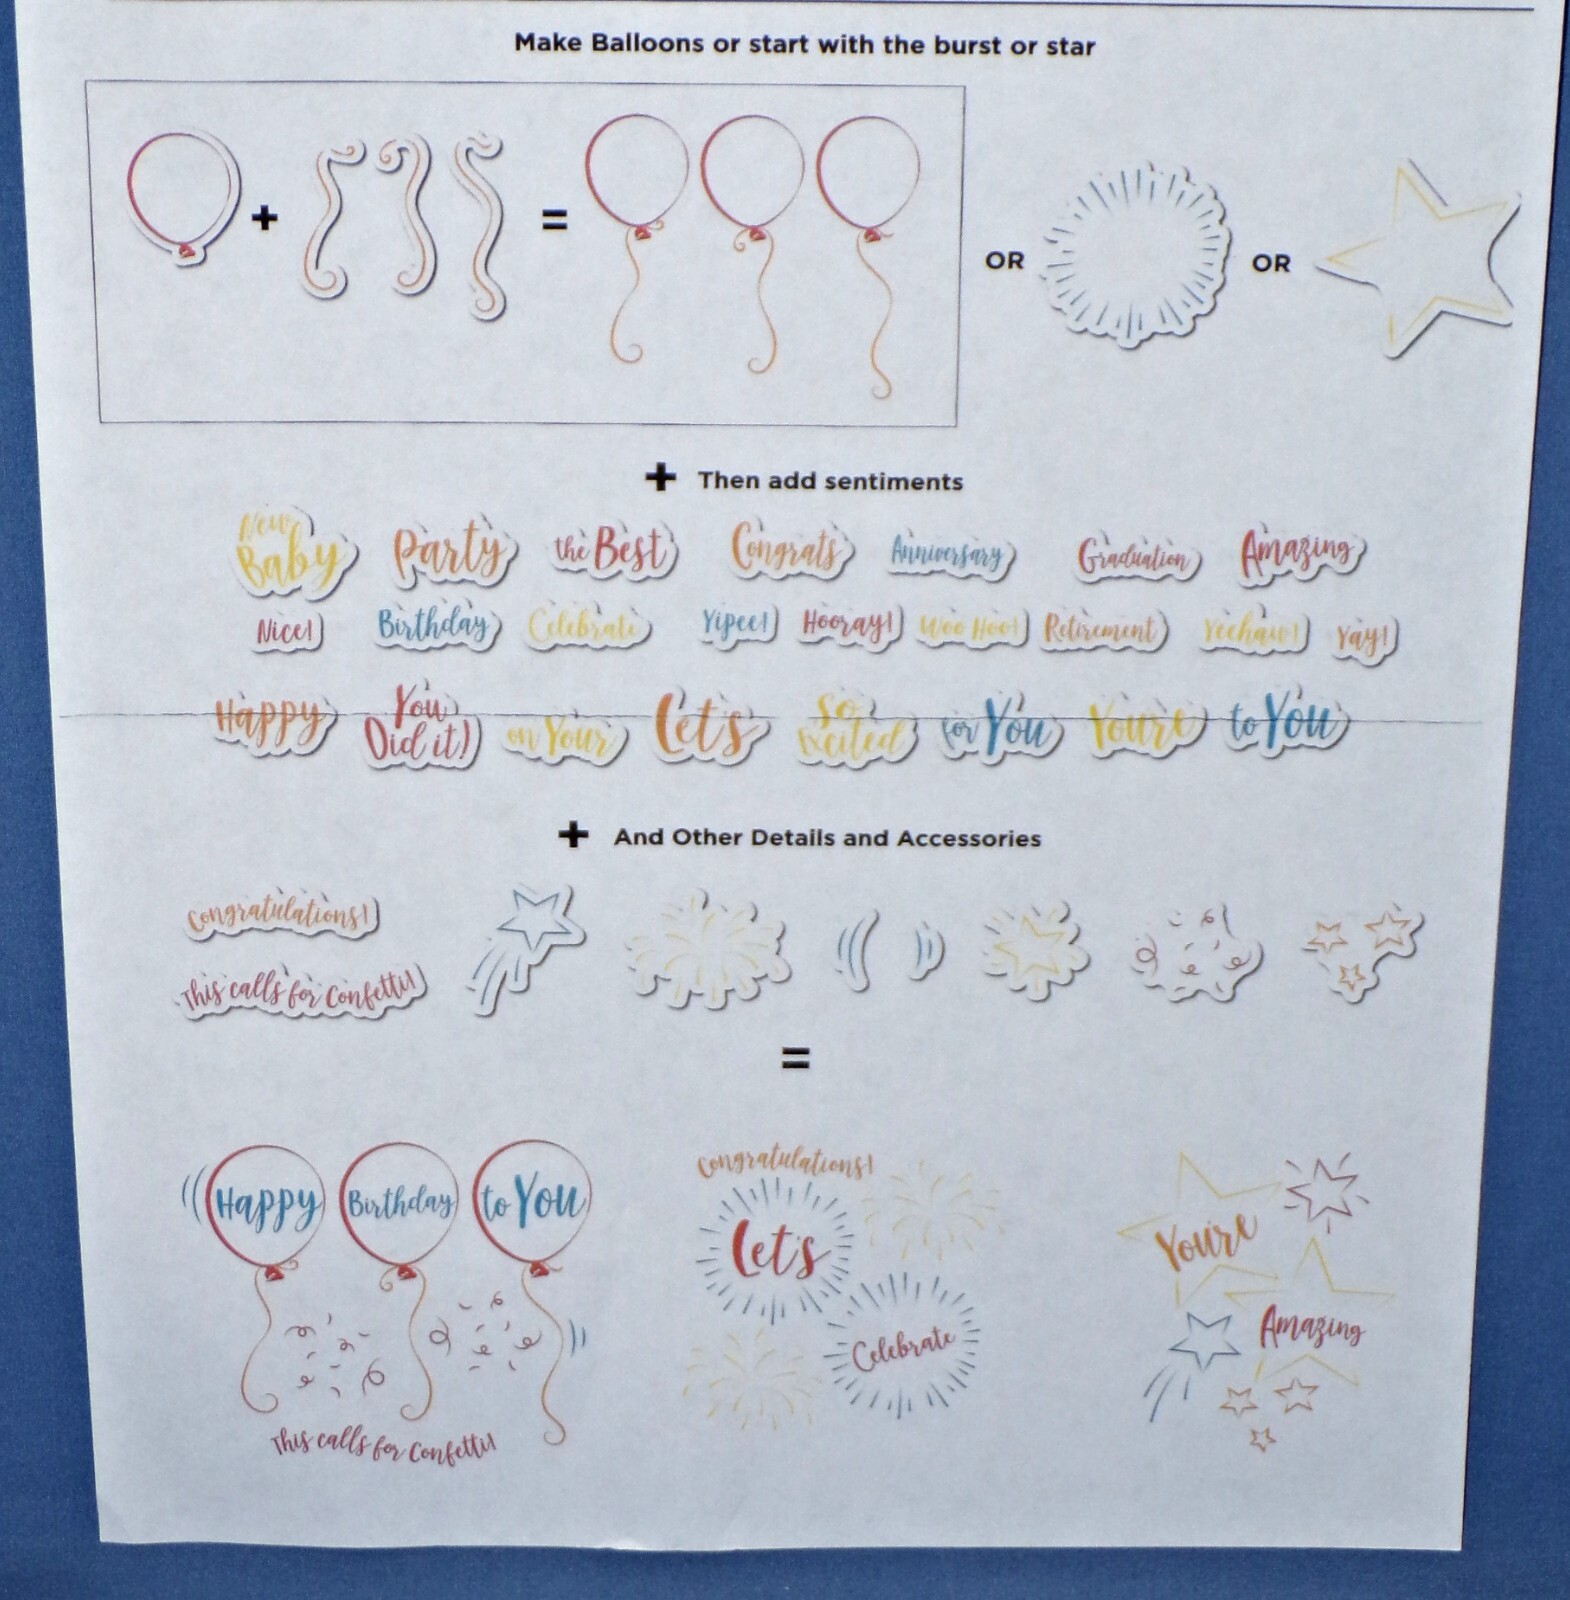 Make Balloons or start with the burst or star
+ = OR OR
+ Then add sentiments
New
Baby Party the Best Congrats Anniversary Graduation Amazing
Nice! Birthday Celebrate Yipee! Hooray! Woo Hoo! Retirement Yeehaw! Yay!
Happy You
Did it! on Your Let's So
Excited for You You're to You
+ And Other Details and Accessories
Congratulations!
This calls for Confetti!
=
Happy Birthday to You
This calls for Confetti!
Congratulations!
Let's
Celebrate
You're
Amazing